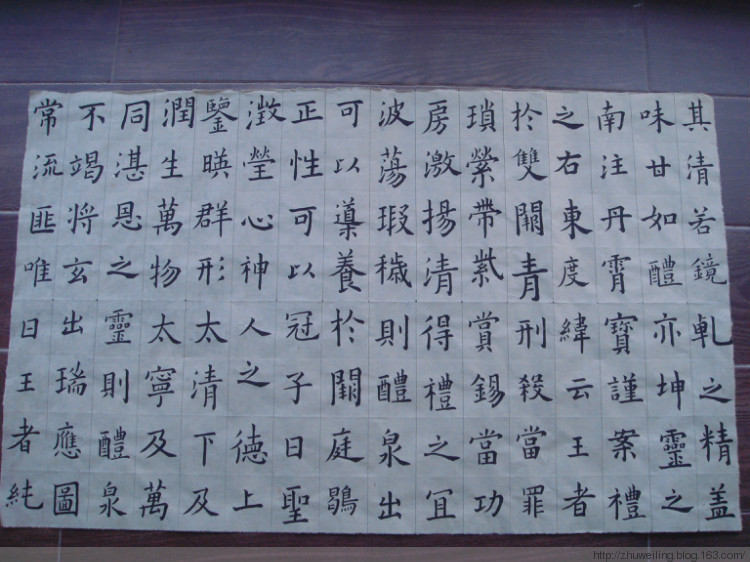 其清若鏡
味甘如醴
南注丹霄
之右東度
於雙闕青
瑣縈帶紫
房激揚清
波蕩瑕穢
可以導養
正性可以
澂瑩心神
鑒暎群形
潤生萬物
同湛恩之
不竭將玄
常流匪唯
軋之精盖
亦坤靈之
寶謹案禮
緯云王者
刑殺當罪
賞錫當功
得禮之冝
則醴泉出
於闕庭鶡
冠子曰聖
人之德上
太清下及
太寧及萬
靈則醴泉
出瑞應圖
曰王者純
http://zhuweiling.blog.163.com/